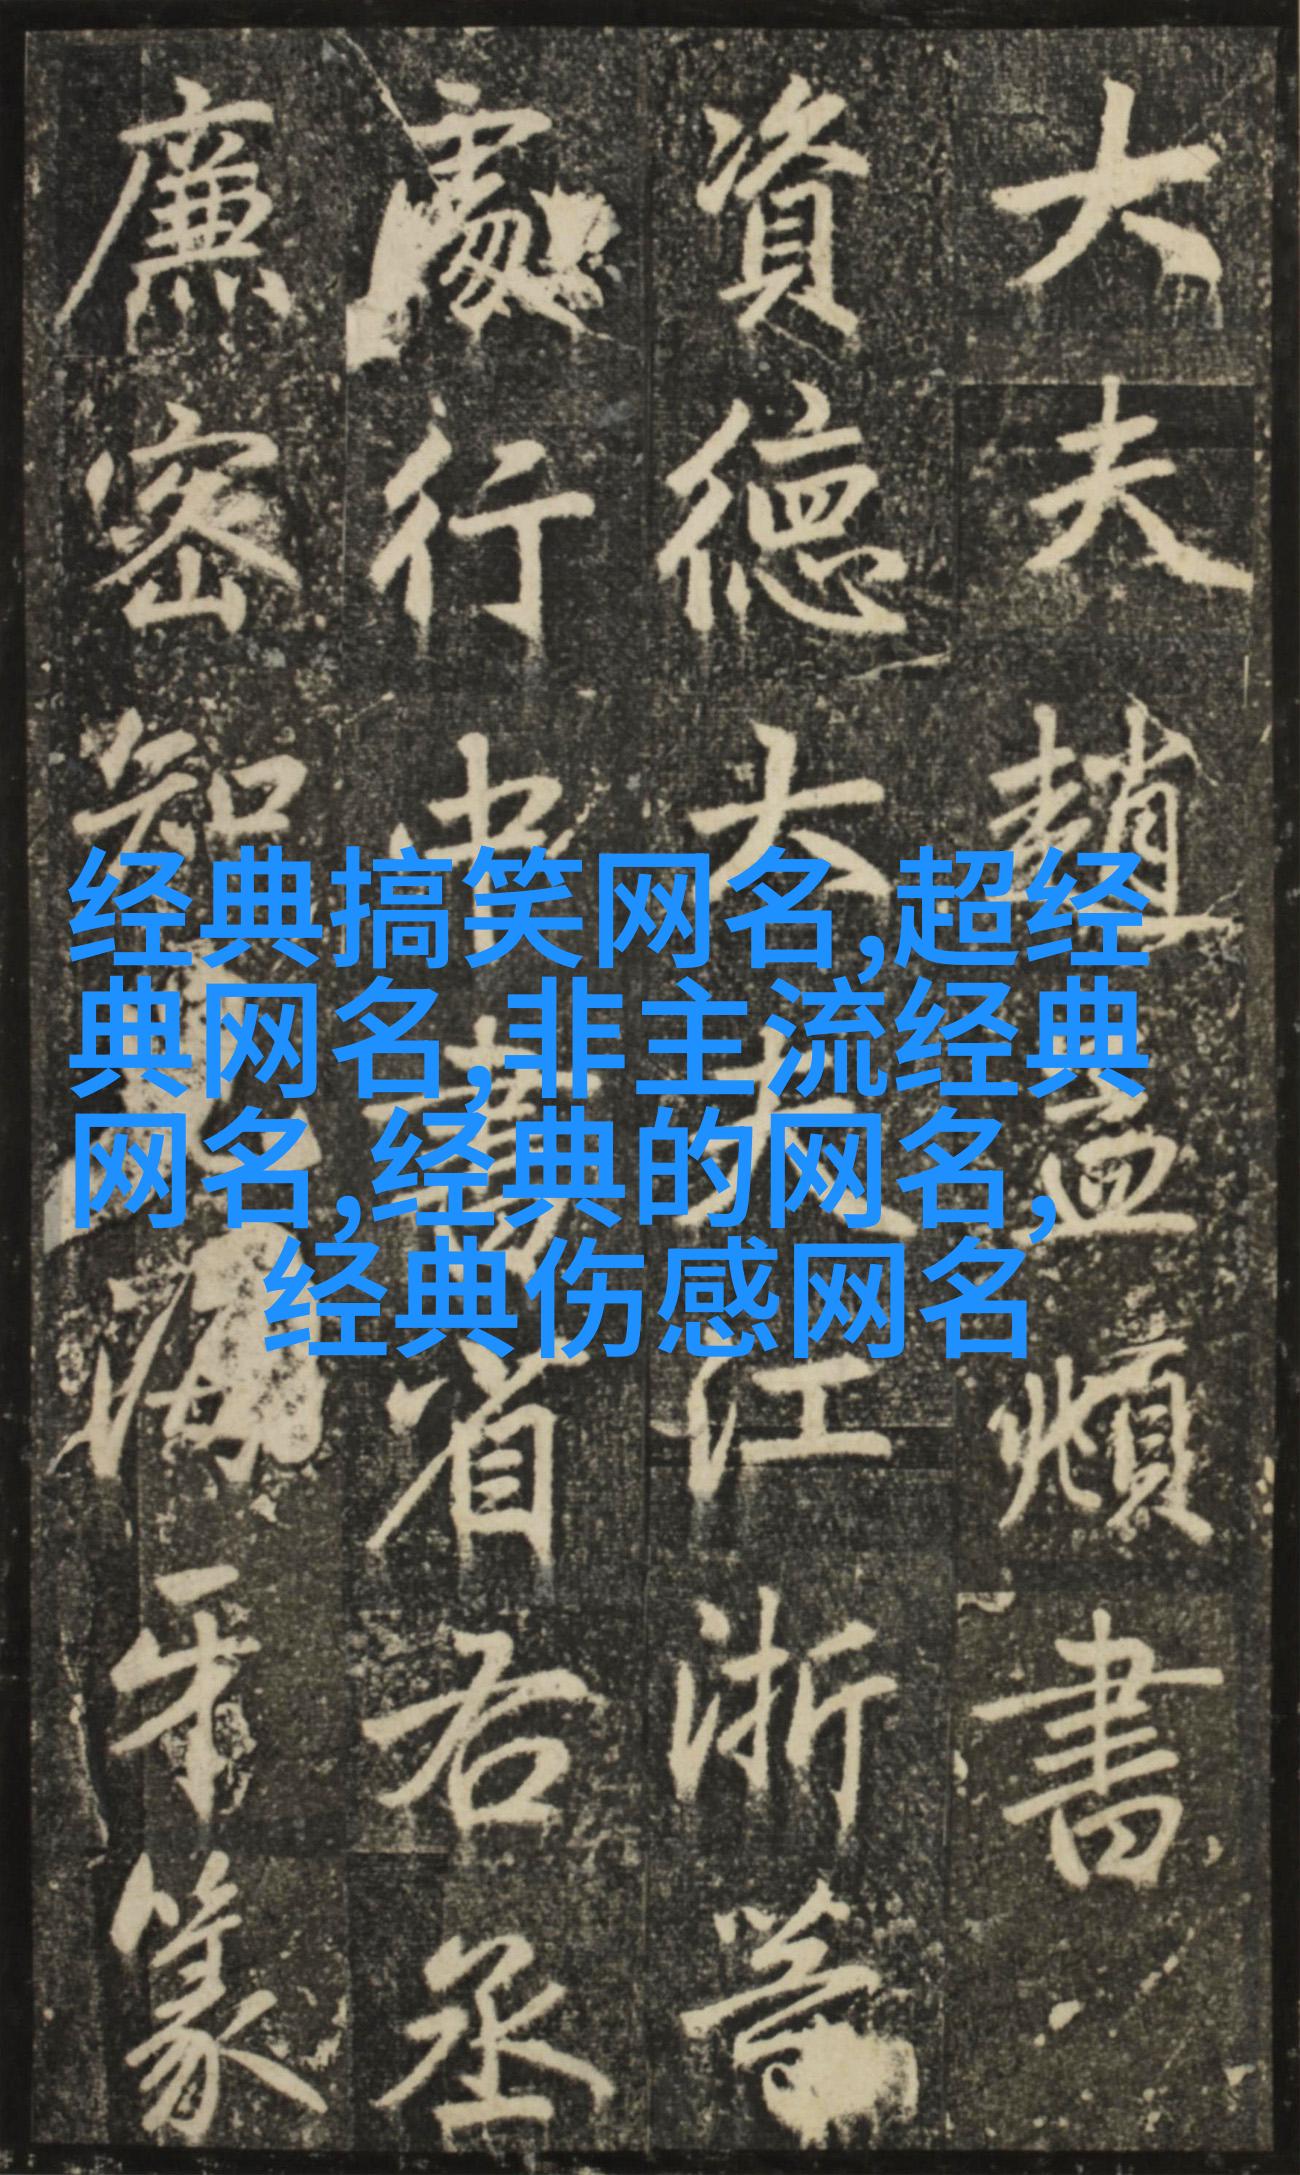 大夫趙孟頫書
資德大夫江浙等
處行中書省右丞
廉密知海牙篆
经典搞笑网名,超经
典网名,非主流经典
网名,经典的网名,
经典伤感网名